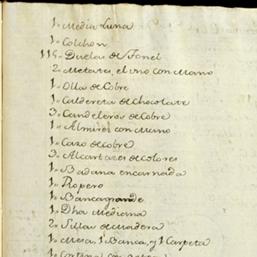 1„ Media Luna
1„ Colchon
115„ Duelas de Tonel
2„ Metates, el uno con Mano
1„ Olla de Cobre
1„ Caldereta de Chocolate
3„ Candeleros de Cobre
1„ Almires con Mano
1„ Cazo de cobre
3„ Alcartazes de colores
1„ Badana encarnada
1„ Ropero
1„ Banca grande
1„ Dha Mediana
2„ Sillas de Madera
1„ Mesa, 1 Banca, y 1 Carpeta